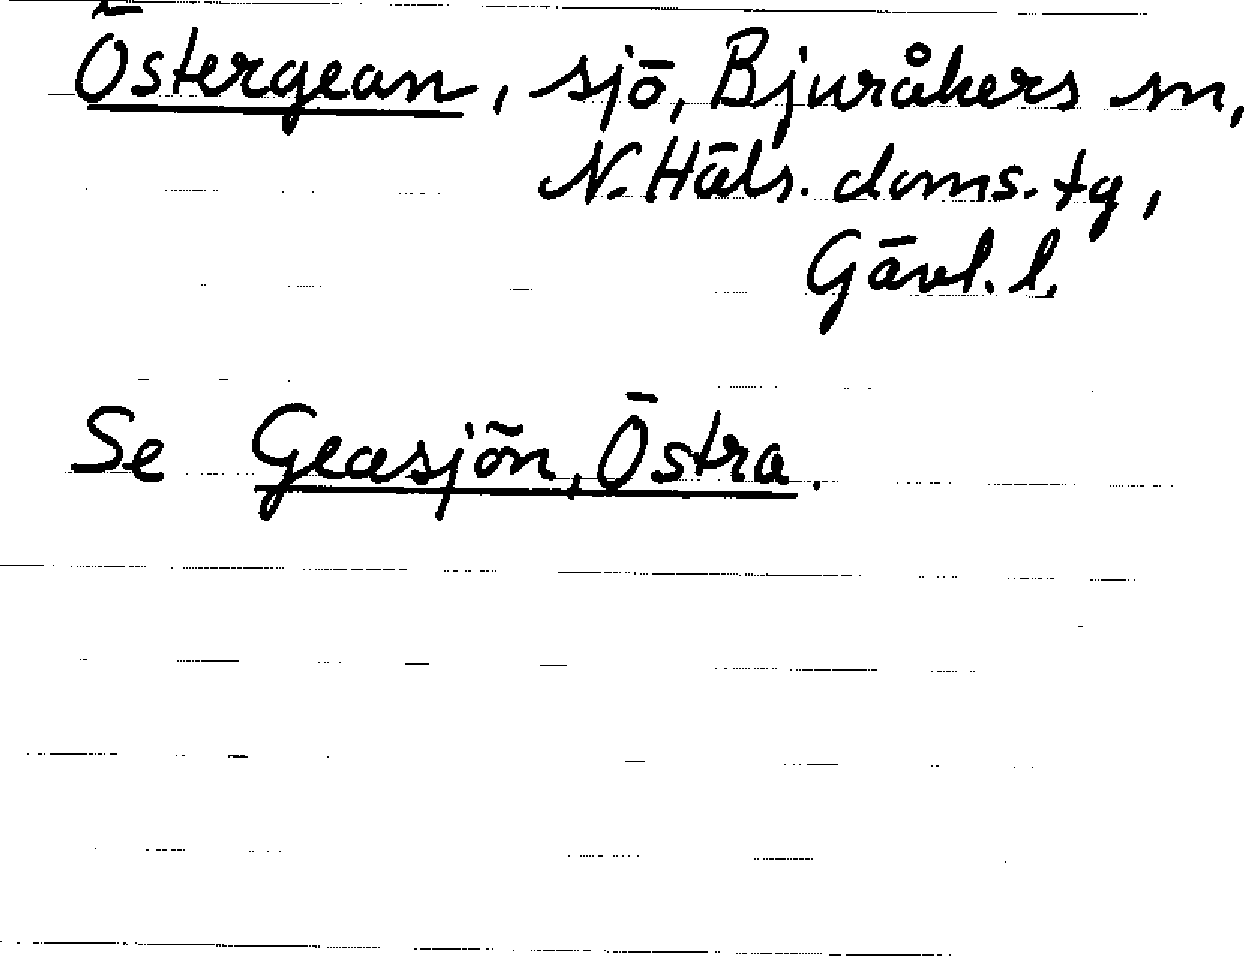 Östergean, sjö, Bjuråkers sn,
N. Häls. doms. tg,
Gävl. l.
Se Geasjön, Östra.